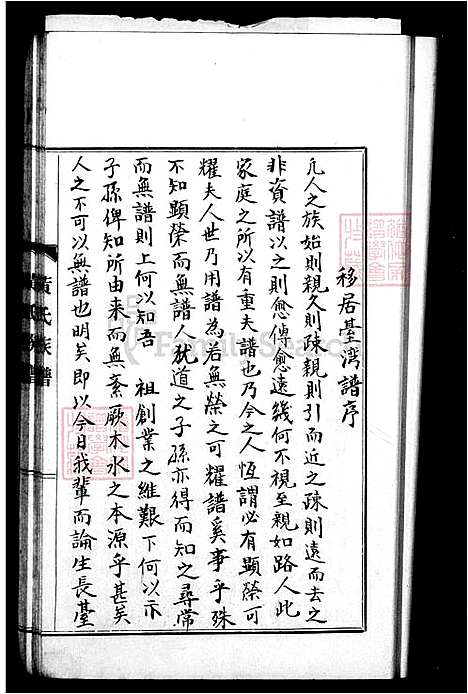 移居臺灣譜序
凡人之族始則親久則疎親則引而近之疎則遠而去之
非資譜以之則愈傳愈遠幾何不視至親如路人此
家庭之所以有重夫譜也乃今之人恆謂必有顯榮可
耀夫人世乃用譜為若無榮之可耀譜奚事乎殊
不知顯榮而無譜人犹道之子孫亦得而知之尋常
而無譜則上何以知吾 祖創業之維艱下何以示
子孫俾知所由来而無紊厥木水之本源乎甚矣
人之不可以無譜也明矣即以今日我輩而論生長臺
黃氏族譜
FamilySearch